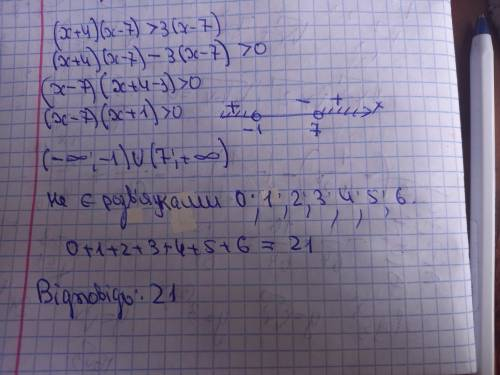 (x+4)(x-7)>3(x-7)
(x+4)(x-7)-3(x-7)>0
(x-7)(x+4-3)>0
(x-7)(x+1)>0
+ - + x
-1 7
(-∞;-1)∪(7;+∞)
не є розв'язками 0; 1; 2; 3; 4; 5; 6.
0+1+2+3+4+5+6=21
Відповідь: 21